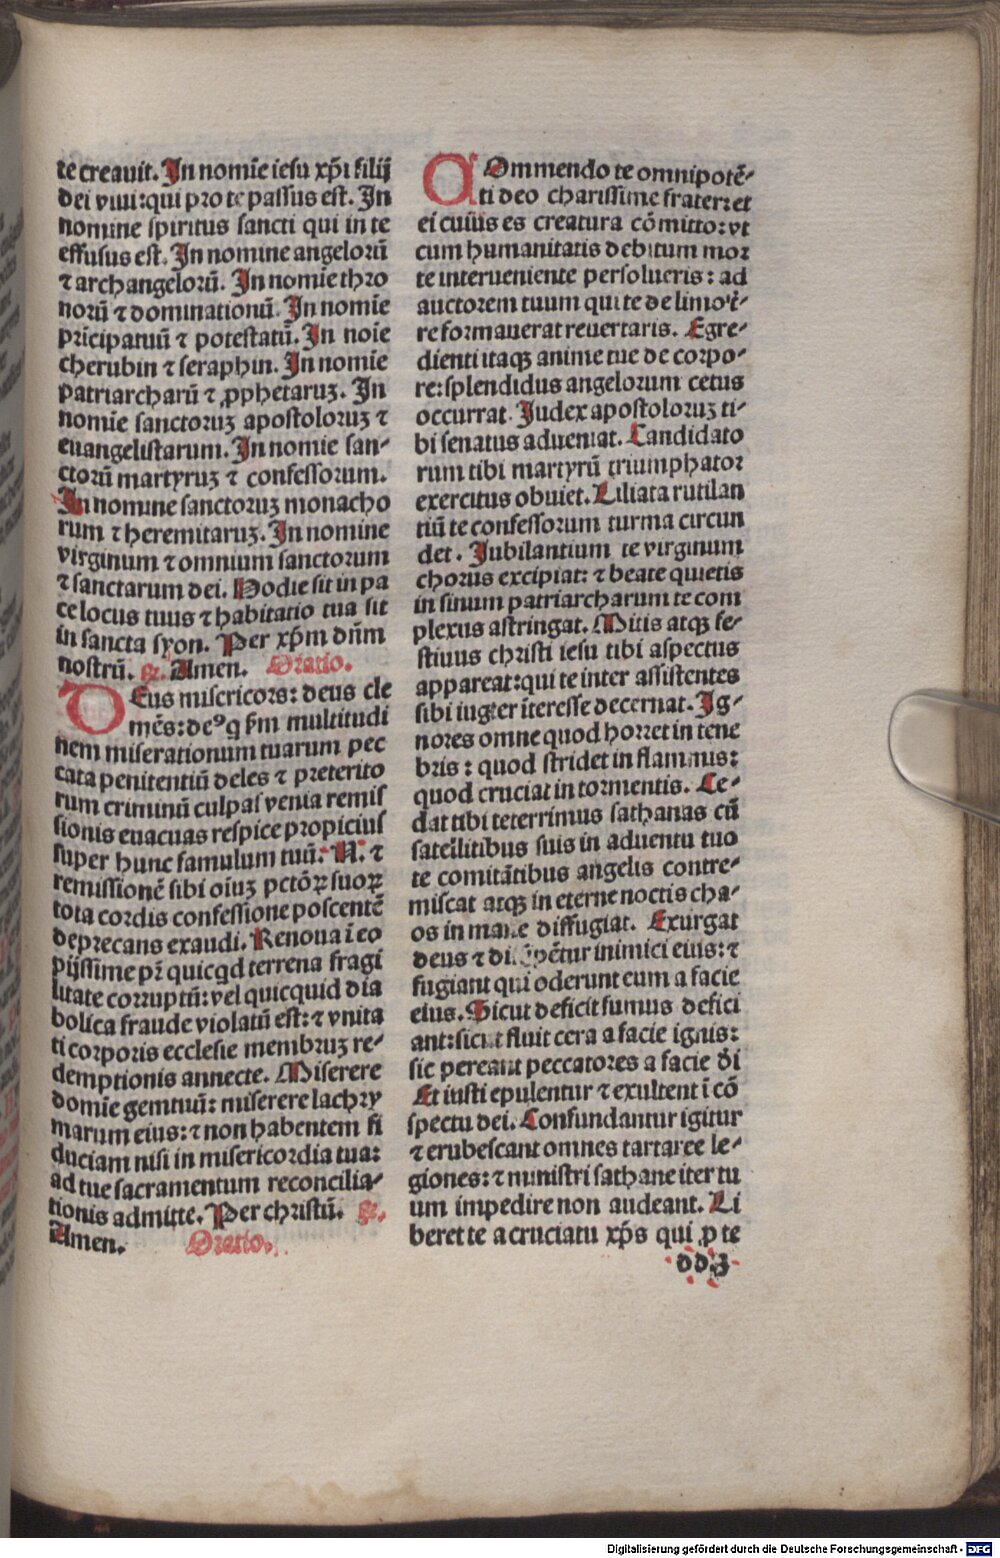 te creauit. In nomīe iesu xp̄i filij
dei viui: qui pro te passus est. In
nomine spiritus sancti qui in te
effusus est. In nomine angelorū
⁊ archangelorū. In nomīe thro
norū ⁊ dominationū. In nomīe
prīcipatuū ⁊ potestatū. In noīe
cherubin ⁊ seraphin. In nomīe
patriarcharū ⁊ ꝓphetaruꝫ. In
nomīe sanctoruꝫ apostoloruꝫ ⁊
euangelistarum. In nomīe san-
ctorū martyruꝫ ⁊ confessorum.
In nomine sanctoruꝫ monacho
rum ⁊ heremitaruꝫ. In nomine
virginum ⁊ omnium sanctorum
⁊ sanctarum dei. Hodie sit in pa
ce locus tuus ⁊ habitatio tua sit
in sancta syon. Per xp̄m dn̄m
nostrū. ꝶ. Amen. Oratio.
DEus misericors: deus cle
mēs: deꝰ q̄ ẜm multitudi
nem miserationum tuarum pec
cata penitentiū deles ⁊ preterito
rum criminū culpas venia remis
sionis euacuas respice propicius
super hunc famulum tuū: N. ⁊
remissionē sibi oīuꝫ pctōꝝ suoꝝ
tota cordis confessione poscentē
deprecans exaudi. Renoua ī eo
pijssime pr̄ quicqd terrena fragi
litate corruptū: vel quicquid dia
bolica fraude violatū est: ⁊ vnita
ti corporis ecclesie membruꝫ re-
demptionis annecte. Miserere
domīe gemituū: miserere lachry
marum eius: ⁊ non habentem fi
duciam nisi in misericordia tua:
ad tue sacramentum reconcilia-
tionis admitte. Per christū. ꝶ.
Amen. Oratio.
COmmendo te omnipotē-
ti deo charissime frater: et
ei cuius es creatura cōmitto: vt
cum humanitatis debitum mor
te interueniente persolueris: ad
auctorem tuum qui te de limo t̄-
re formauerat reuertaris. Egre-
dienti itaqꝫ anime tue de corpo-
re: splendidus angelorum cetus
occurrat. Judex apostoloruꝫ ti-
bi senatus adueniat. Candidato
rum tibi martyrū triumphator
exercitus obuiet. Liliata rutilan
tiū te confessorum turma circun
det. Jubilantium te virginum
chorus excipiat: ⁊ beate quietis
in sinum patriarcharum te com
plexus astringat. Mitis atqꝫ fe-
stiuus christi iesu tibi aspectus
appareat: qui te inter assistentes
sibi iugiter īteresse decernat. Ig-
nores omne quod horret in tene
bris: quod stridet in flammis:
quod cruciat in tormentis. Ce-
dat tibi teterrimus sathanas cū
satellitibus suis in aduentu tuo
te comitātibus angelis contre-
miscat atqꝫ in eterne noctis cha-
os inmane diffugiat. Exurgat
deus ⁊ dissipētur inimici eius: ⁊
fugiant qui oderunt eum a facie
eius. Sicut deficit fumus defici
ant: sicut fluit cera a facie ignis:
sic pereant peccatores a facie dī
Et iusti epulentur ⁊ exultent ī cō
spectu dei. Confundantur igitur
⁊ erubescant omnes tartaree le-
giones: ⁊ ministri sathane iter tu
um impedire non audeant. Li
beret te a cruciatu xp̄s qui ꝓ te
dd 3
Digitalisierung gefördert durch die Deutsche Forschungsgemeinschaft - DFG